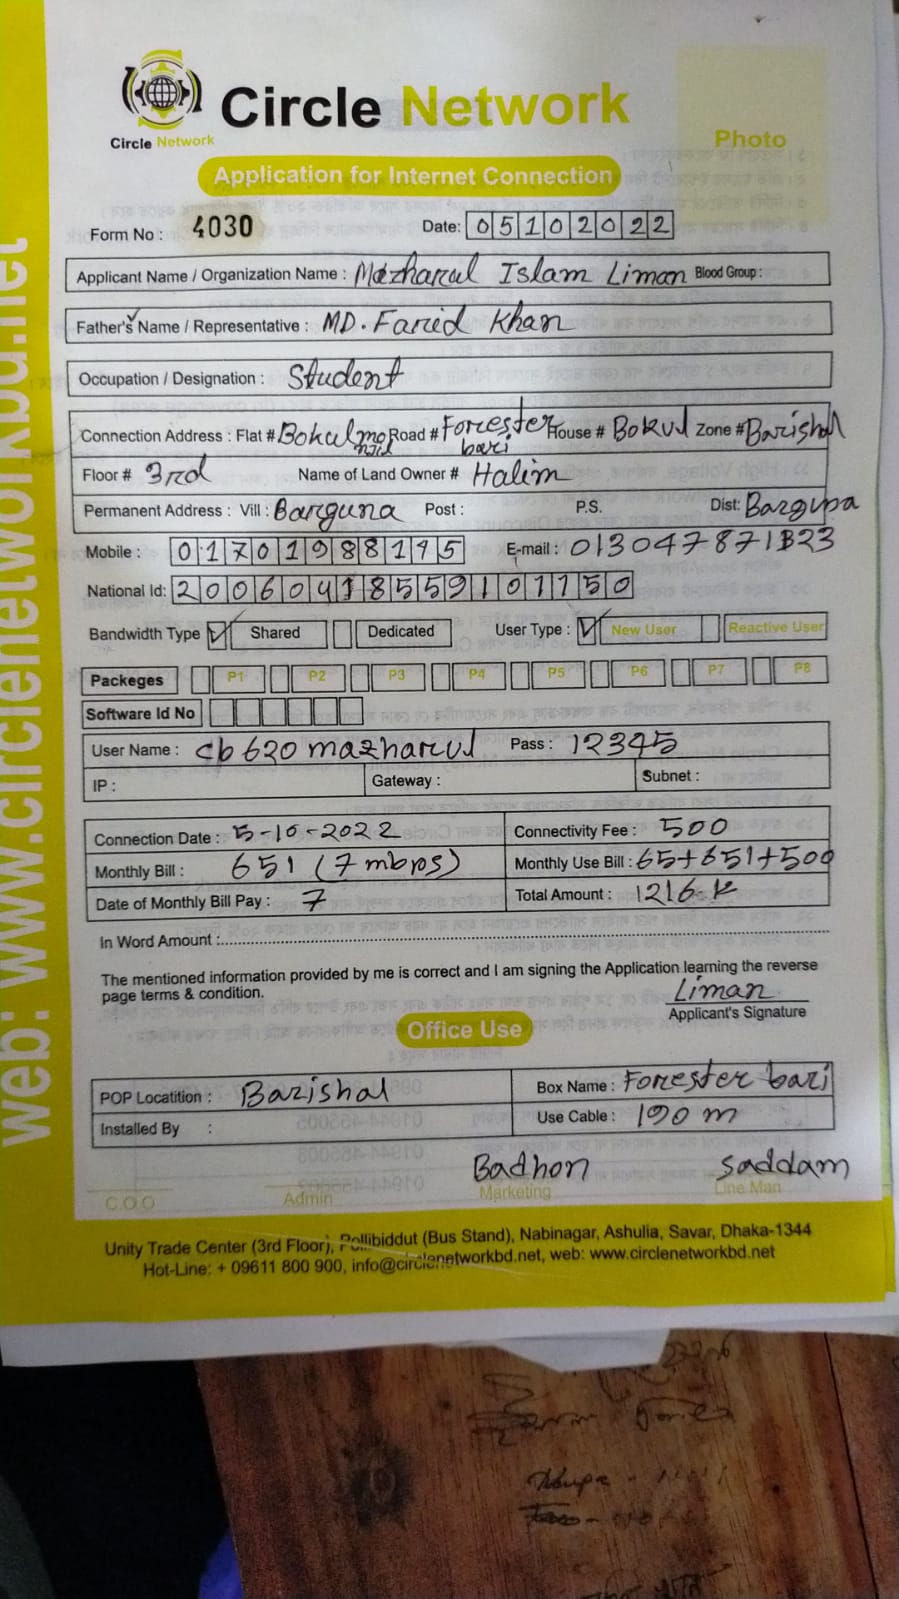 Circle Network
Circle Network
Photo
Application for Internet Connection
Form No : 4030 Date: 05102022
Applicant Name / Organization Name : Mazharul Islam Liman Blood Group :
Father's Name / Representative : MD. Farid Khan
Occupation / Designation : Student
Connection Address : Flat # Bokulmonjil Road # Forester bari House # Bokul Zone # Barishal
Floor # 3rd Name of Land Owner # Halim
Permanent Address : Vill : Barguna Post : P.S. Dist: Barguna
Mobile : 01701988195 E-mail :
National Id:
Bandwidth Type Shared Dedicated User Type : New User Reactive User
Packeges P1 P2 P3 P4 P5 P6 P7 P8
Software Id No
User Name : cb620mazharul Pass : 12345
IP : Gateway : Subnet :
Connection Date : 5-10-2022 Connectivity Fee : 500
Monthly Bill : 651 (7 mbps) Monthly Use Bill : 65+651+500
Date of Monthly Bill Pay : 7 Total Amount : 1216
In Word Amount :
The mentioned information provided by me is correct and I am signing the Application learning the reverse
page terms & condition.
Liman
Applicant's Signature
Office Use
POP Locatition : Barishal Box Name : Forester bari
Installed By : Use Cable : 190 m
Badhon Saddam
C.O.O Admin Marketing Line Man
Unity Trade Center (3rd Floor), Pollibiddut (Bus Stand), Nabinagar, Ashulia, Savar, Dhaka-1344
Hot-Line: + 09611 800 900, info@circlenetworkbd.net, web: www.circlenetworkbd.net
web: www.circlenetworkbd.net